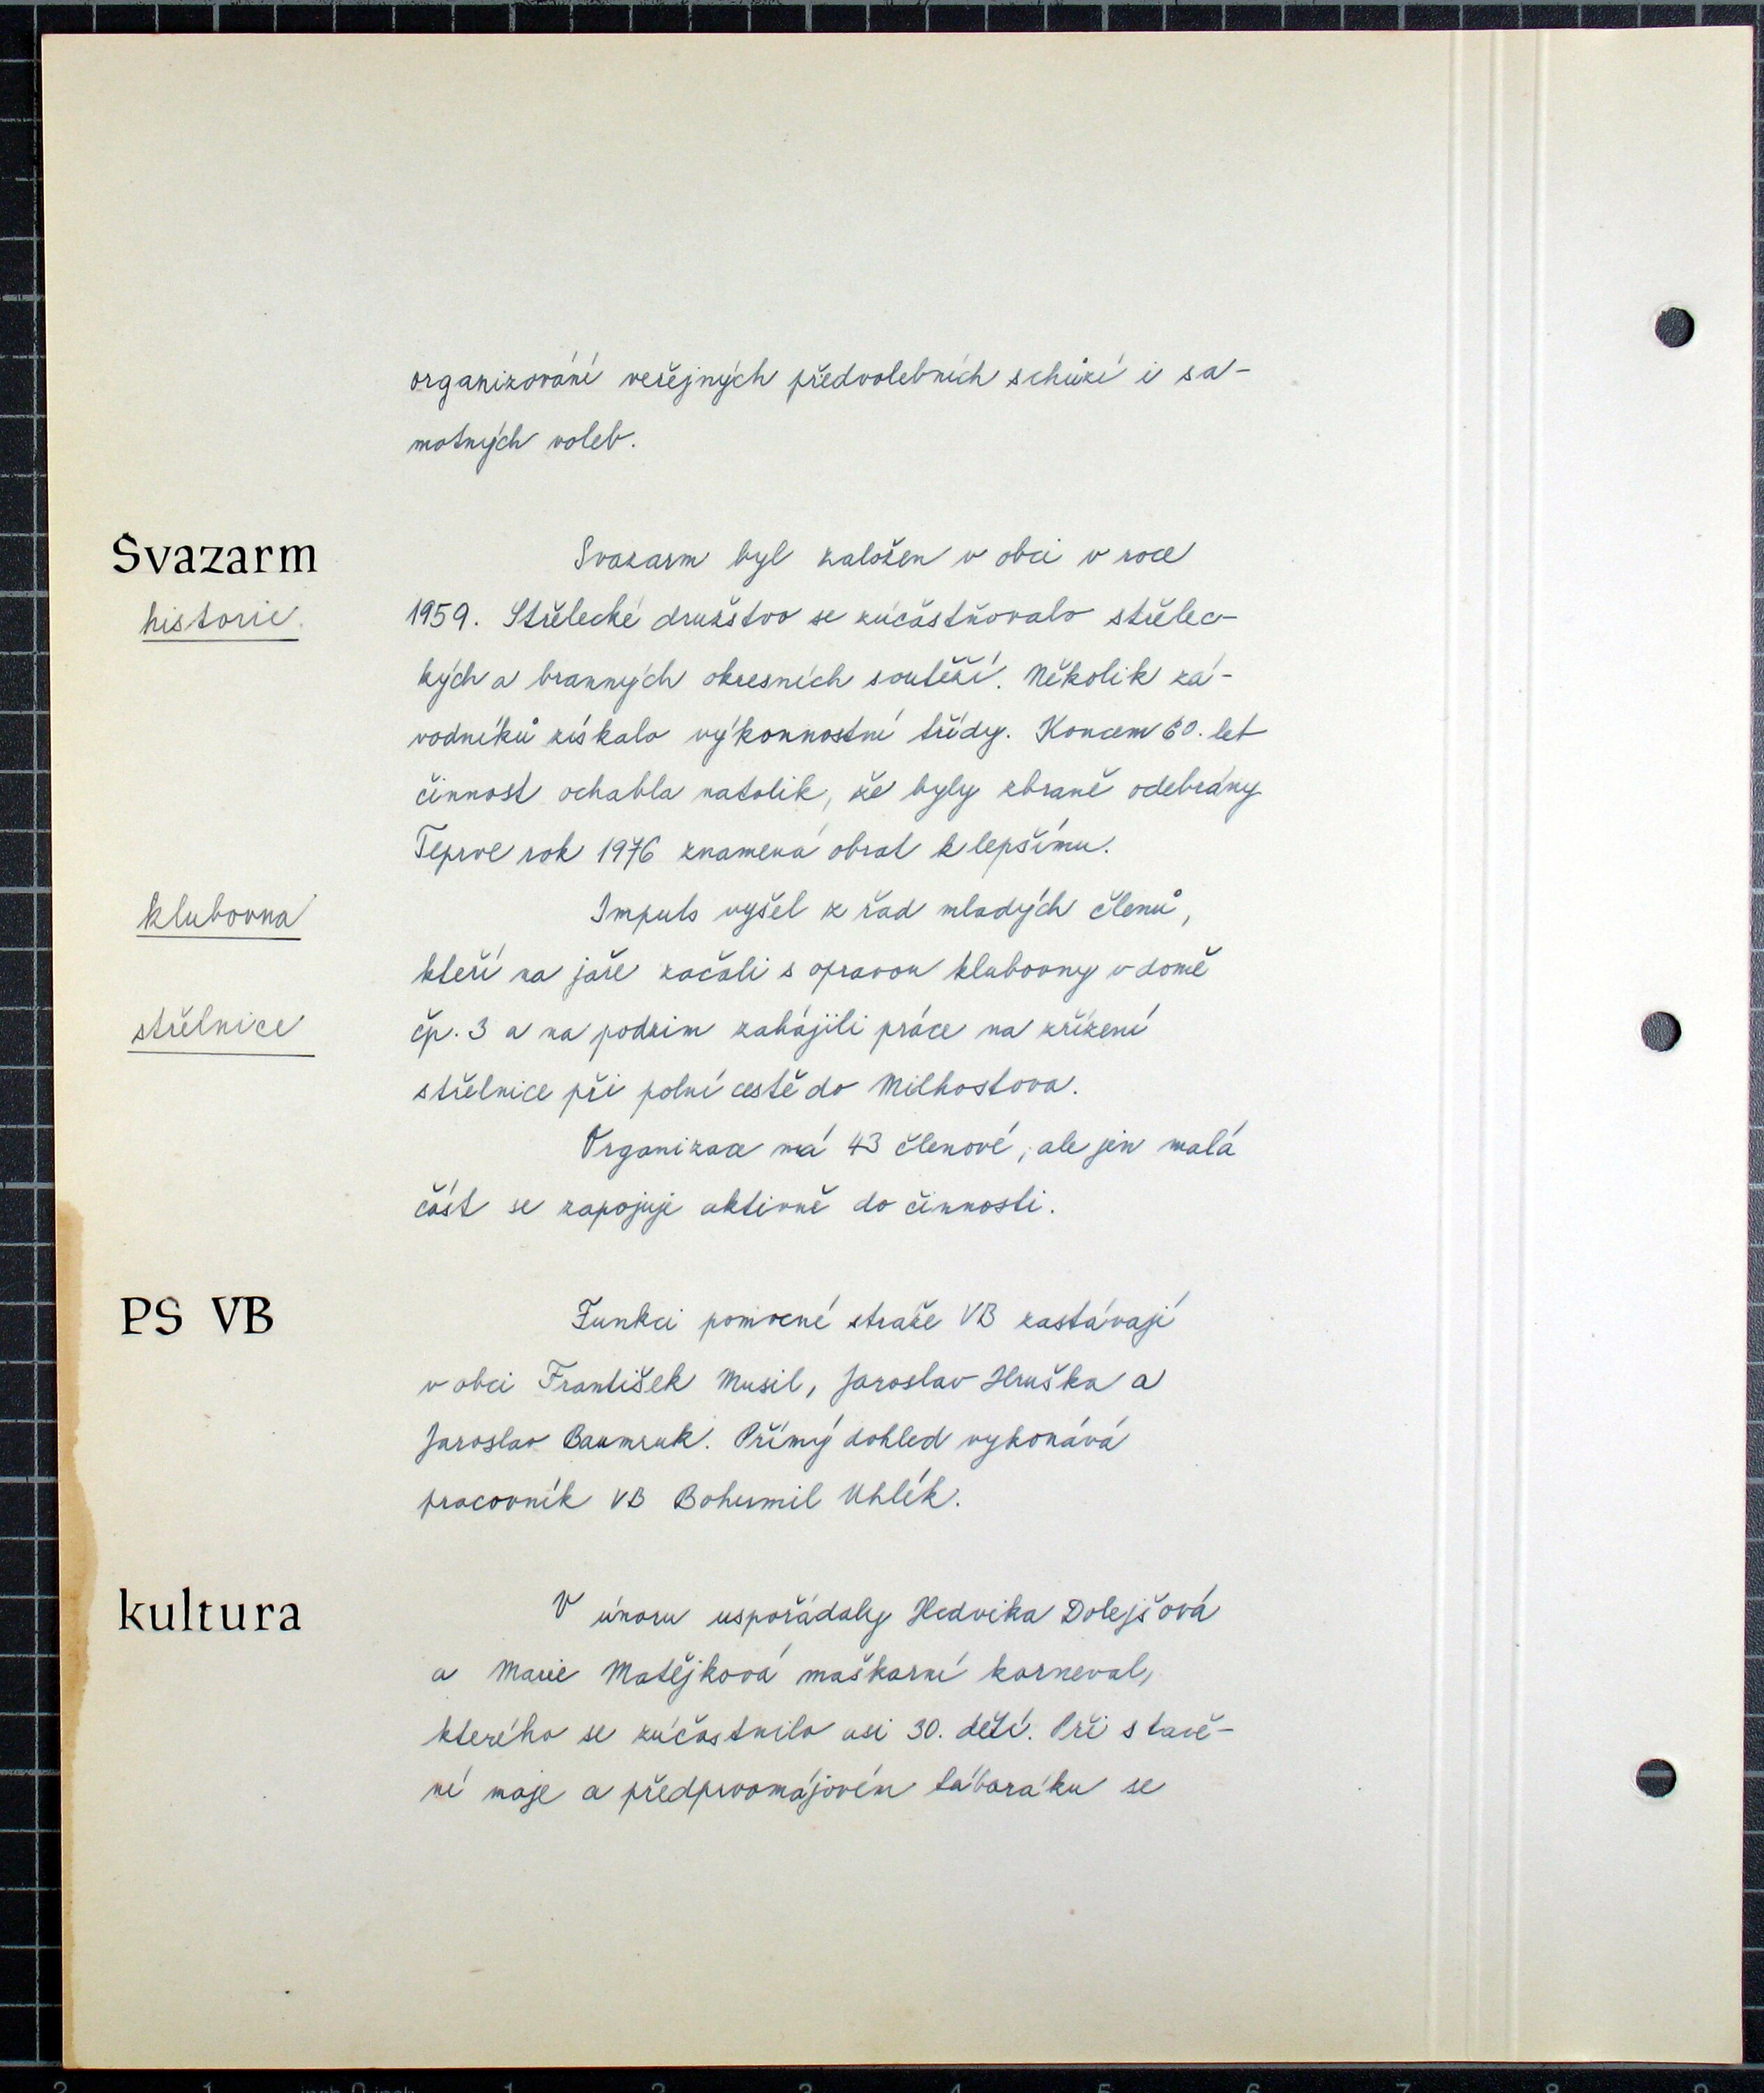 organizování veřejných předvolebních schůzí i sa-
motných voleb.
Svazarm
Svazarm byl založen v obci v roce
historie
1959. Střelecké družstvo se zúčastňovalo střelec-
kých a branných okresních soutěží. Několik zá-
vodníků získalo výkonnostní třídy. Koncem 60. let
činnost ochabla natolik, že byly zbraně odebrány
Teprve rok 1976 znamená obrat k lepšímu.
klubovna
Impuls vyšel z řad mladých členů,
kteří na jaře začali s opravou klubovny v domě
střelnice
čp. 3 a na podzim zahájili práce na zřízení
střelnice při polní cestě do Milhostova.
Organizace má 43 členové, ale jen malá
část se zapojuje aktivně do činnosti.
PS VB
Funkci pomocné stráže VB zastávají
v obci František Musil, Jaroslav Hruška a
Jaroslav Baumruk. Přímý dohled vykonává
pracovník VB Bohumil Uhlík.
kultura
V únoru uspořádaly Hedvika Dolejšová
a Marie Matějková maškarní karneval,
kterého se zúčastnilo asi 30. dětí. Při stavě-
ní máje a předprvomájovém táboráku se